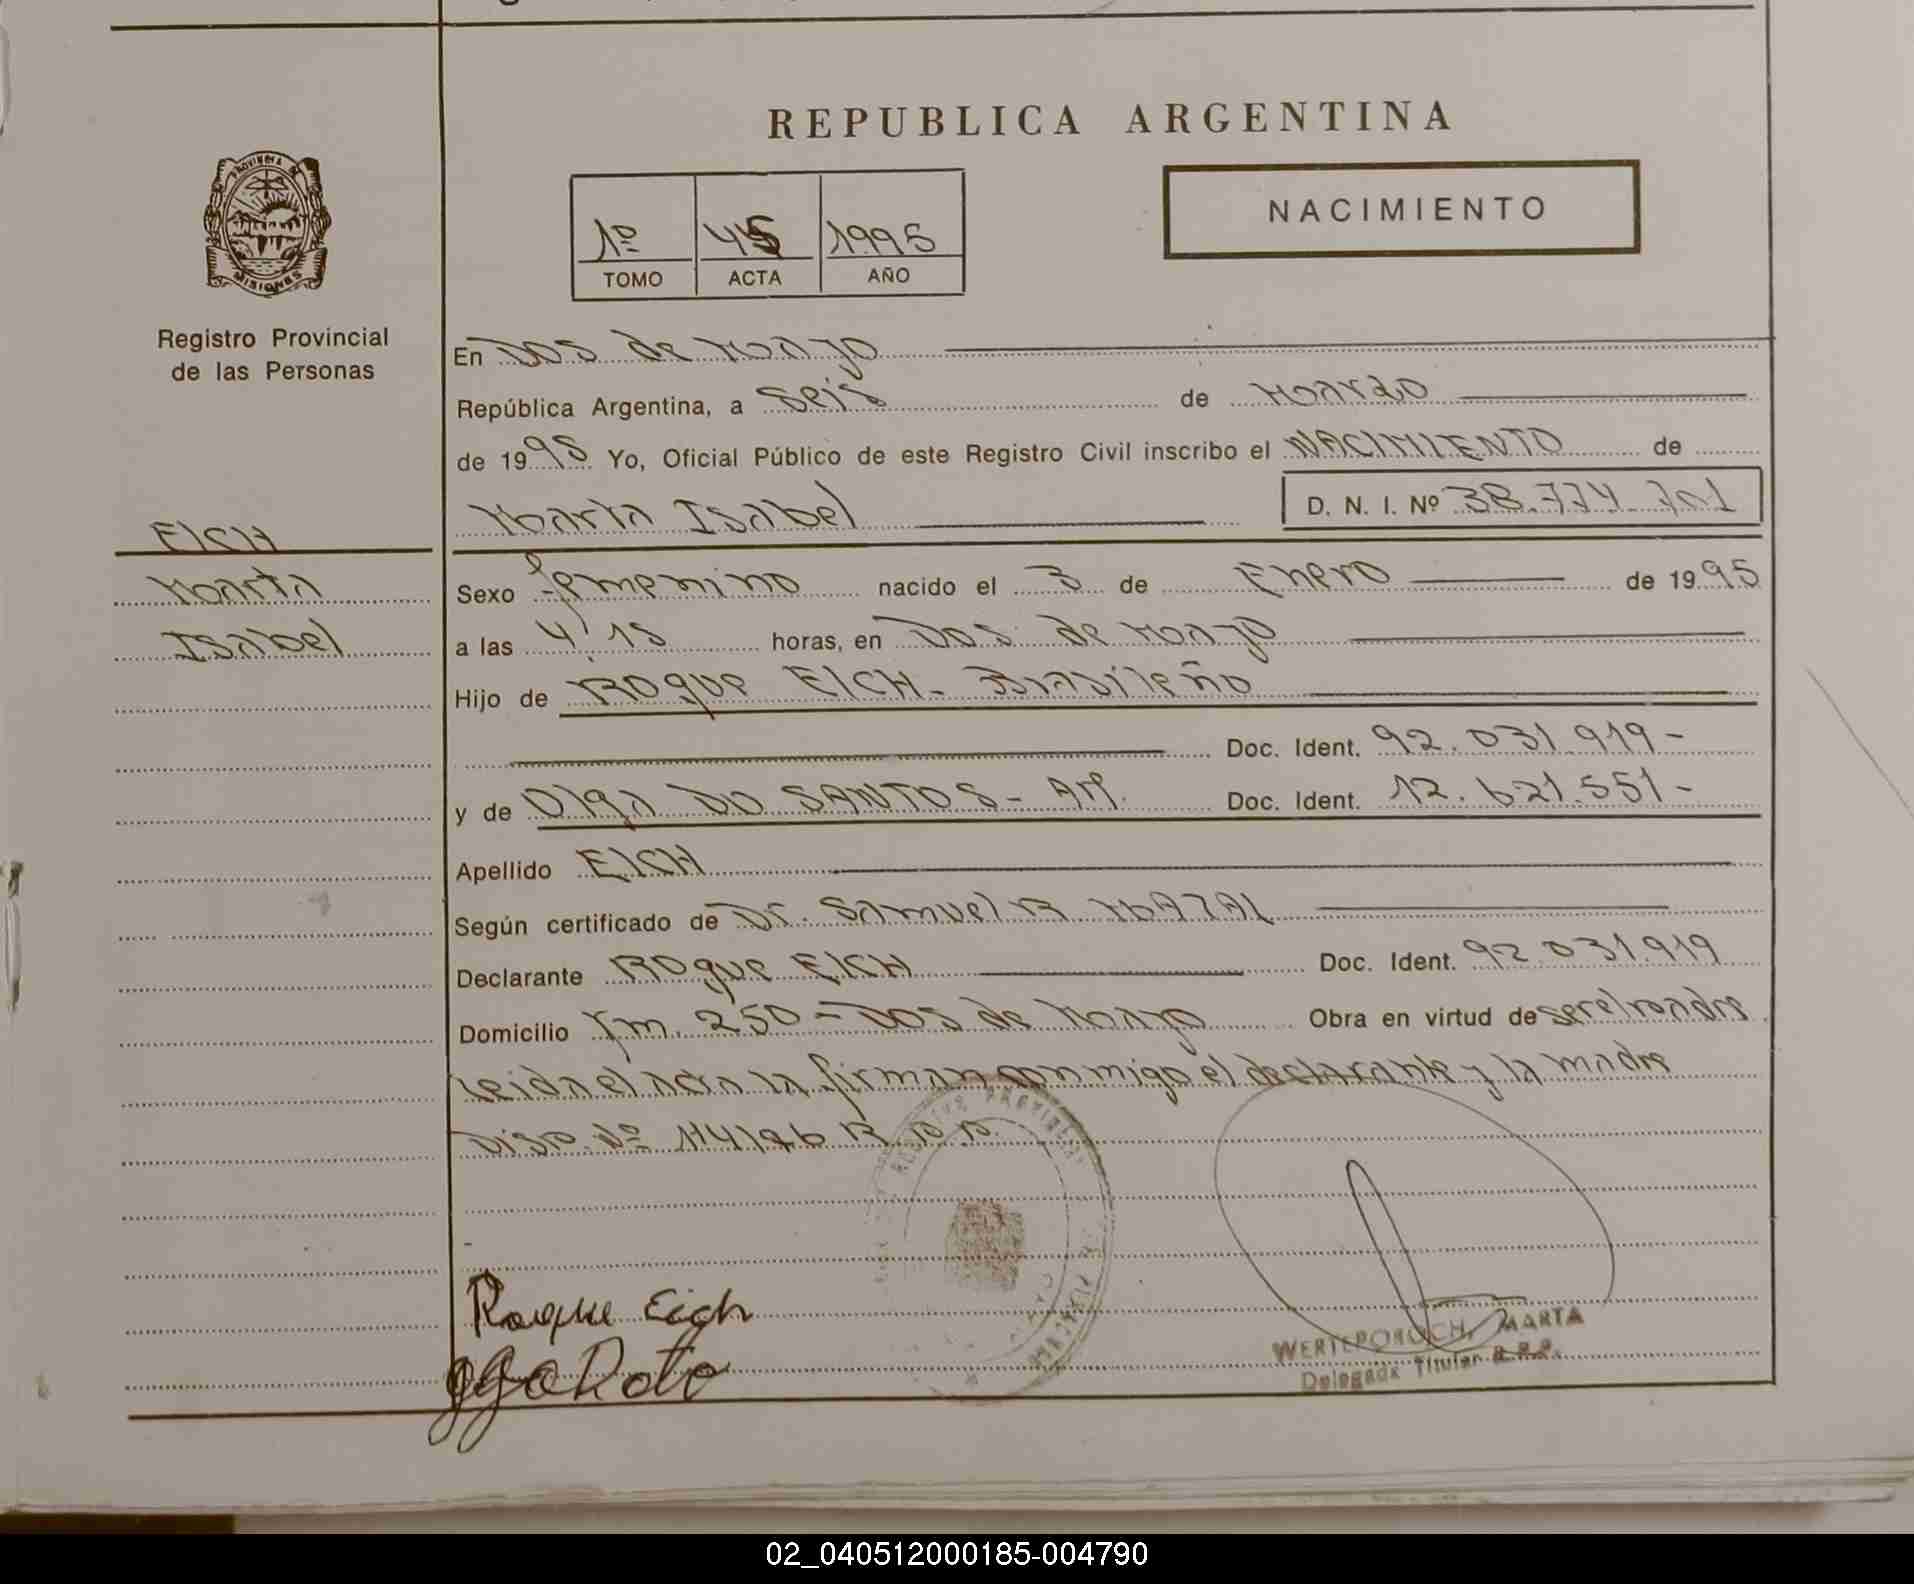 REPUBLICA ARGENTINA
PROVINCIA DE
MISIONES
Registro Provincial
de las Personas
NACIMIENTO
1º 45 1995
TOMO ACTA AÑO
En Dos de Mayo
República Argentina, a Seis de Marzo
de 1995 Yo, Oficial Público de este Registro Civil inscribo el NACIMIENTO de
Marta Isabel D. N. I. Nº 38.774.701
EICH
Marta
Isabel
Sexo femenino nacido el 3 de Enero de 1995
a las 4:15 horas, en Dos de Mayo
Hijo de Roque EICH - Brasileño
Doc. Ident. 92.031.919-
y de Olga DO SANTOS - Ar. Doc. Ident. 12.621.551-
Apellido EICH
Según certificado de Dr. Samuel R
Declarante Roque EICH Doc. Ident. 92.031.919
Domicilio Km. 250 - Dos de Mayo Obra en virtud de ser el padre
Leida el acta la firman conmigo el declarante y la madre
Disp. Nº 114/76 R.P.P.
Roque Eich
WERTEPOROCH, MARTA
Delegada Titular R.P.P.
02_040512000185-004790